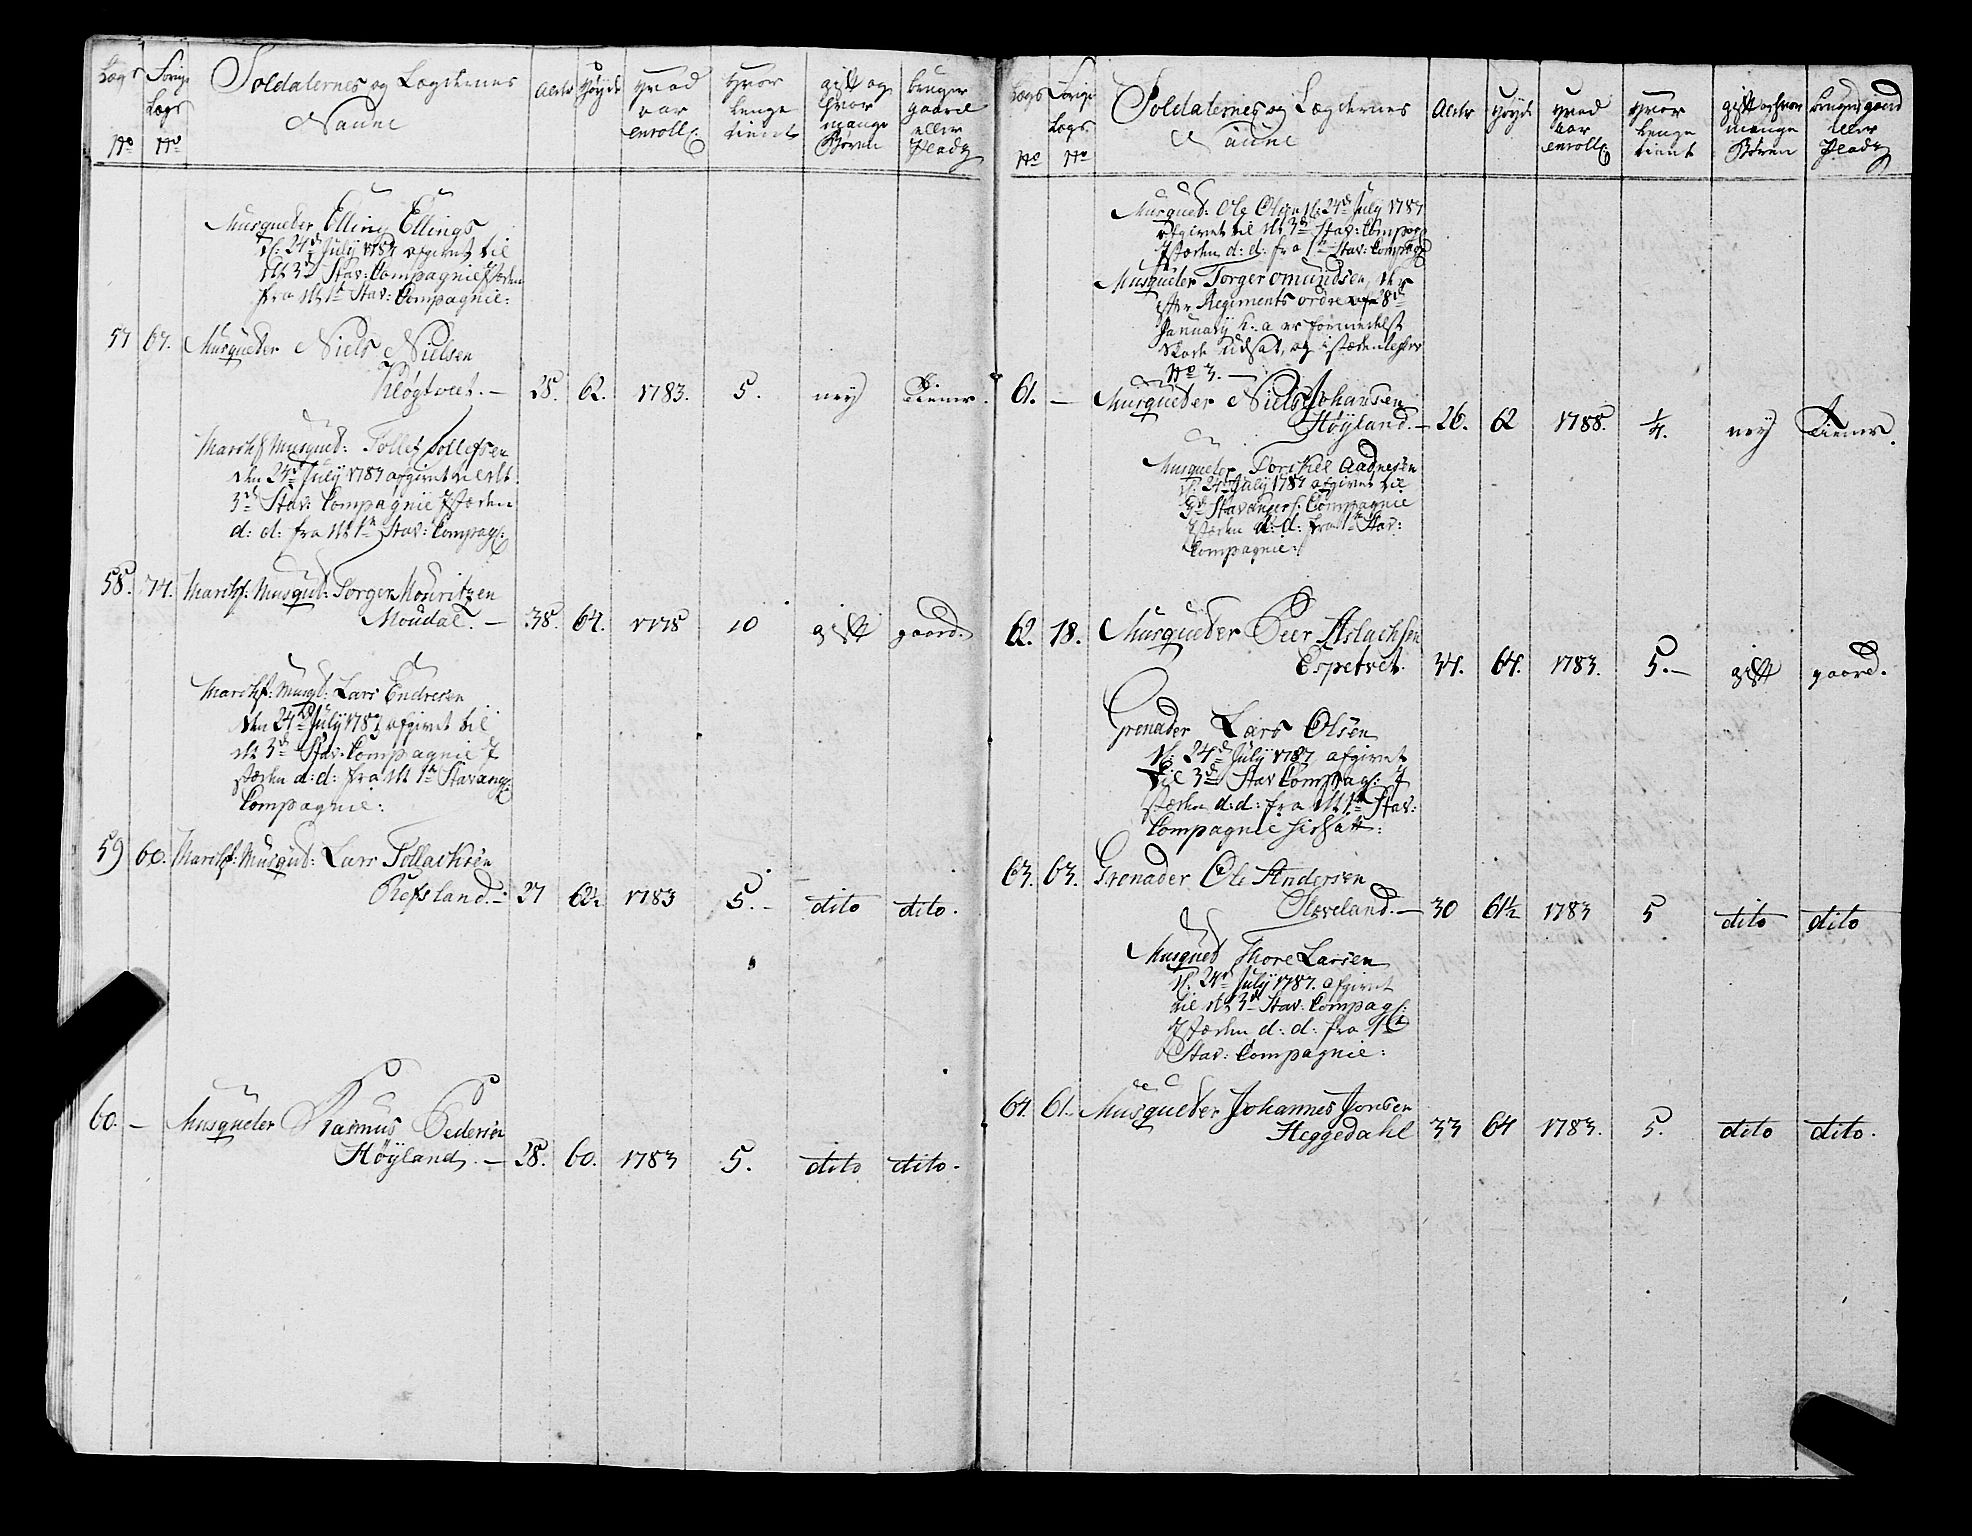 Lægs No
Forige Lægs No
Soldaternes og Lægdernes Nafne
Alder
Høyde
Hvad aar enroll:
Hvor lenge tient
gift og hvor mange Børn
bruger gaard eller Plads
Musqueter Elling Ellings
d: 24de July 1787 afgivet til
det 3de Stav: Compagnie I stæden
fra det 1te Stav: Compagnie:
57 67. Musqueter Niels Nielsen
Kløgtvet. — 28. 62. 1783. 5. ney tiener.
Marchf Musquet: Tollef Tollefsen
den 24de July 1787 afgivet til det
3de Stav: Compagnie I stæden
d: d: fra det 1te Stav: Compag:
58. 74. Marchf: Musqut: Torger Mouritzen
Moudal. — 38. 64. 1778 10 gift gaard.
Marchf: Musqt: Lars Endresen
den 24de July 1787 afgivet til
det 3de Stav: Compagnie I
stæden d: d: fra det 1te Stavang:
Compagnie:
59 60. Marchf: Musqut: Lars Tollachsen
Refsland. — 27 62½ 1783 5. — dito dito.
60. — Musqueter Rasmus Pedersen
Høyland. — 28. 60. 1783 5. dito dito.
Lægs No
Forige Lægs No
Soldaternes og Lægdernes Nafne
Alder
Høyde
Hvad aar enroll:
Hvor lenge tient
gift og hvor mange Børn
bruger gaard eller Plads
Musquet: Ole Olsen d: 24de July 1787
afgivet til det 3de Stav: Compag:
I stæden d: d: fra 1te Stav: Compag:
Musqueter Torger omundsen, der
efter Regiments ordre af 8de
January h: a er formedelst
Skade udsat, og i stæden
No 3. —
61. — Musqueter Niels Johansen
Høyland. — 26. 62 1788. ¼. ney tiener.
Musqueter Torchel Aadnesen
d: 24de July 1787 afgivet til
3de Stavangers: Compagnie
I stæden d: d: fra 1te Stav:
Compagnie:
62. 78. Musqueter Peer Aslachsen
Espetvet. 34. 64. 1783. 5. — gift gaard.
Grenader Lars Olsen
d: 24de July 1787 afgivet
til 3de Stav Compag: I
stæden d: d: fra det 1te Stav:
Compagnie
63. 63. Grenader Ole Andersen
Sleveland. — 30 61½ 1783 5 dito dito
Musquet Thore Larsen
d: 24de July 1787. afgivet
til det 3de Stav: Compag:
I stæden d: d: fra 1te
Stav: Compagnie:
64. 61. Musqueter Johannes Jonsen
Heggedahl 33 64 1783. 5. dito dito.